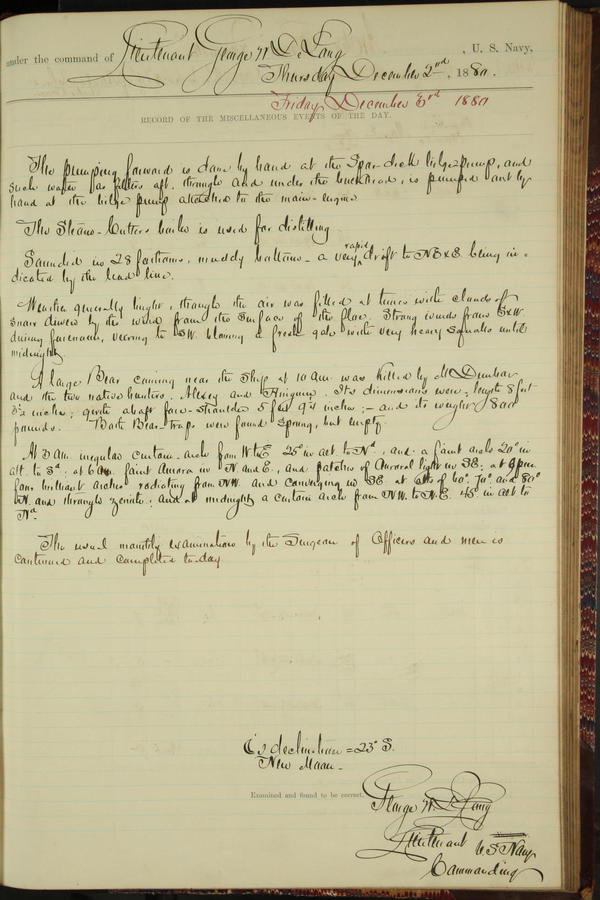 under the command of Lieutenant George W. De Long, U. S. Navy,
Thursday December 2nd, 1880.
Friday, December 3rd 1880
RECORD OF THE MISCELLANEOUS EVENTS OF THE DAY.
The pumping forward is done by hand at the Spar-deck bilge-pump, and
such water as filters aft, through and under the bulkhead, is pumped out by
hand at the bilge pump attached to the main-engine
The Steam-Cutters boiler is used for distilling
Sounded in 28 fathoms, muddy bottom - a very rapid drift to NE x E. being in-
dicated by the lead line.
Weather generally bright, though the air was filled at times with clouds of
snow driven by the wind from the surface of the floe. Strong winds from S x W.
during forenoon, veering to SW. blowing a fresh gale with very heavy squalls until
midnight.
A large Bear coming near the Ship at 10 am. was killed by Mr Dunbar
and the two native hunters, Alexey and Aniguin. Its dimensions were, length 8 feet
inches; girth abaft fore-shoulder 5 feet 9 inches; - and its weight 800
pounds. Both Bear-traps were found sprung, but empty.
At 3 am. irregular curtain-arch from W to E 25° in alt. to Nd, and a faint arch 20° in
alt. to Sd. at 6 am. faint Aurora in N and E, and patches of Auroral light in SE: at 9 pm.
four brilliant arches radiating from NW. and converging in SE at alts of 60°, 70°, and 80°
N. and through zenith; and at midnight a curtain arch from N.W. to N.E. 45° in alt to
Nd.
The usual monthly examination by the Surgeon of Officers and men is
continued and completed to-day
☾s declination = 23° S.
New Moon -
Examined and found to be correct.
George W. De Long
Lieutenant U S Navy
Commanding